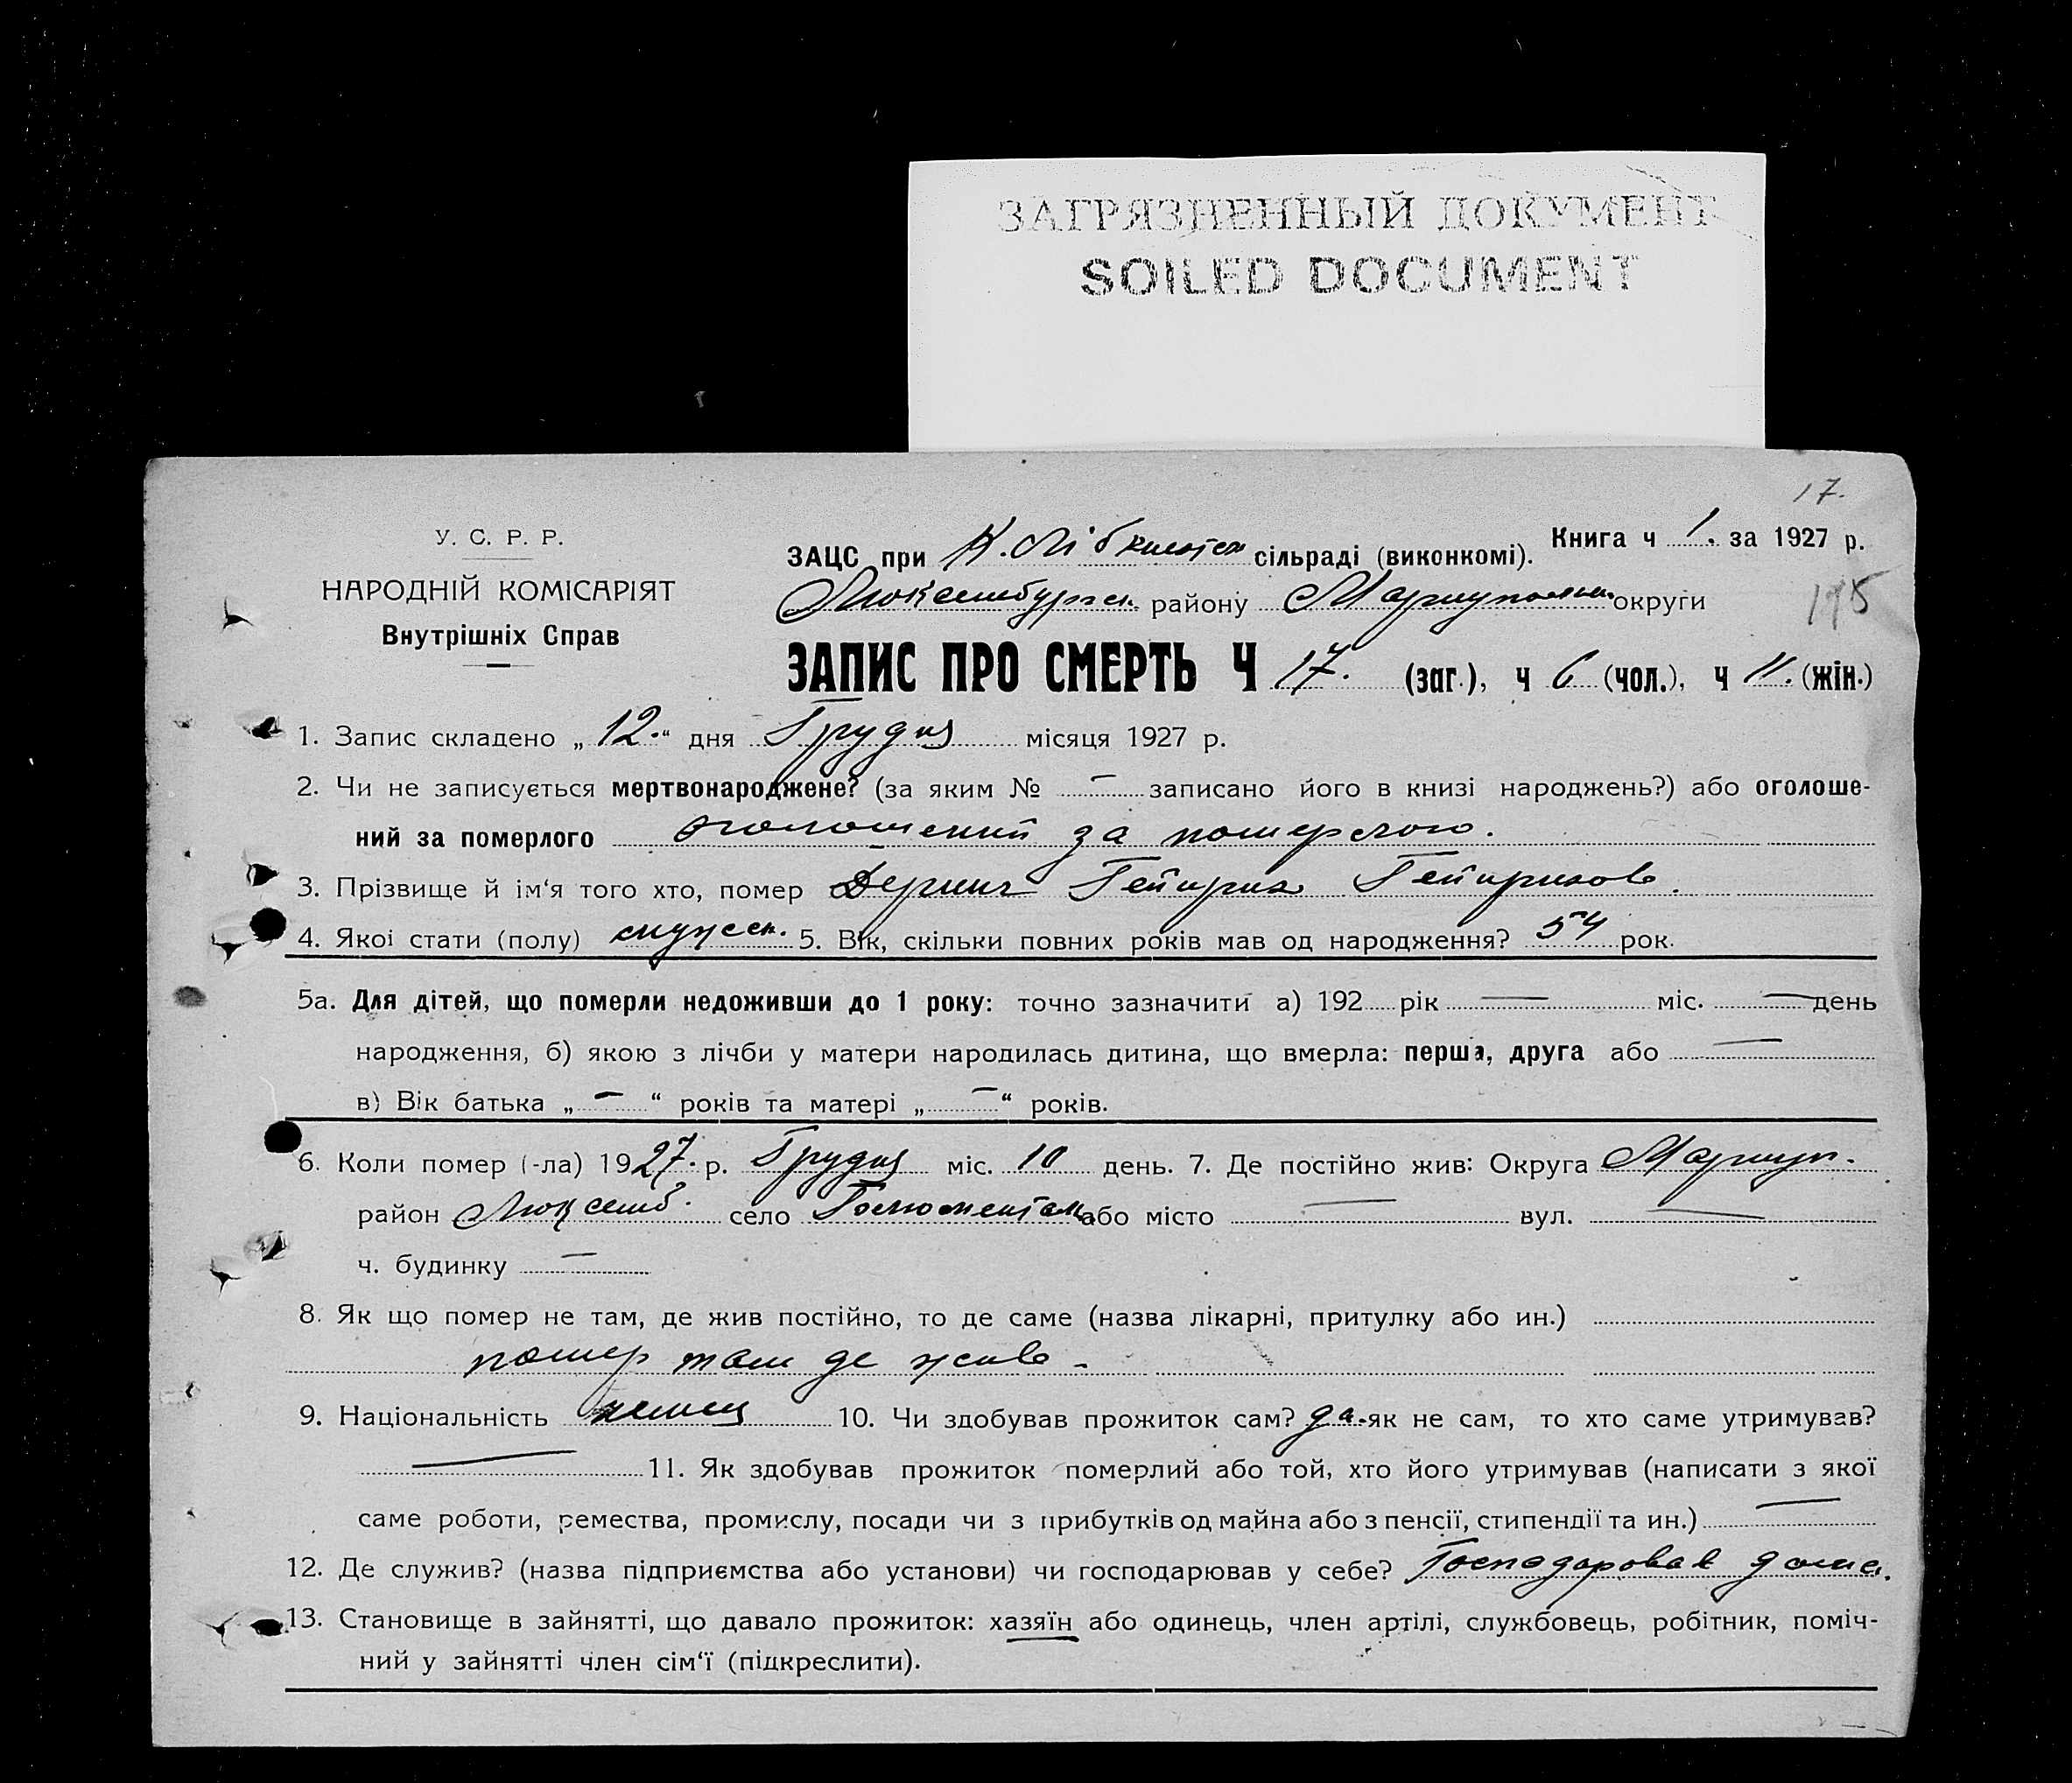 ЗАГРЯЗНЕННЫЙ ДОКУМЕНТ
SOILED DOCUMENT
17.
У. С. Р. Р.
НАРОДНІЙ КОМІСАРІЯТ
Внутрішніх Справ
ЗАЦС при К. Лібкнехтск сільраді (виконкомі). Книга ч 1. за 1927 р.
Люксембургск. району Мариупольск. округи
ЗАПИС ПРО СМЕРТЬ Ч 17. (заг.), ч 6 (чол.), ч 11. (жін.)
1. Запис складено „ 12. “ дня Грудня місяця 1927 р.
2. Чи не записується мертвонароджене? (за яким № — записано його в книзі народжень?) або оголоше-
ний за померлого оголошений за померлого.
3. Прізвище й ім‘я того хто, помер Гейнрих Гейнрихов.
4. Якої стати (полу) мужеск. 5. Вік, скільки повних років мав од народження? 54 рок.
5а. Для дітей, що померли недоживши до 1 року: точно зазначити а) 192 рік — міс. — день
народження, б) якою з лічби у матери народилась дитина, що вмерла: перша, друга або —
в) Вік батька „ — “ років та матері „ — “ років.
6. Коли помер (-ла) 1927. р. Грудня міс. 10 день. 7. Де постійно жив: Округа Мариуп.
район Люксемб. село або місто — вул. —
ч. будинку —
8. Як що помер не там, де жив постійно, то де саме (назва лікарні, притулку або ин.)
помер там де жив -
9. Національність немец 10. Чи здобував прожиток сам? да. як не сам, то хто саме утримував?
— 11. Як здобував прожиток померлий або той, хто його утримував (написати з якої
саме роботи, ремества, промислу, посади чи з прибутків од майна або з пенсії, стипендії та ин.) —
12. Де служив? (назва підприємства або установи) чи господарював у себе? Господаровав дома.
13. Становище в зайнятті, що давало прожиток: хазяїн або одинець, член артілі, службовець, робітник, поміч-
ний у зайнятті член сім‘ї (підкреслити).